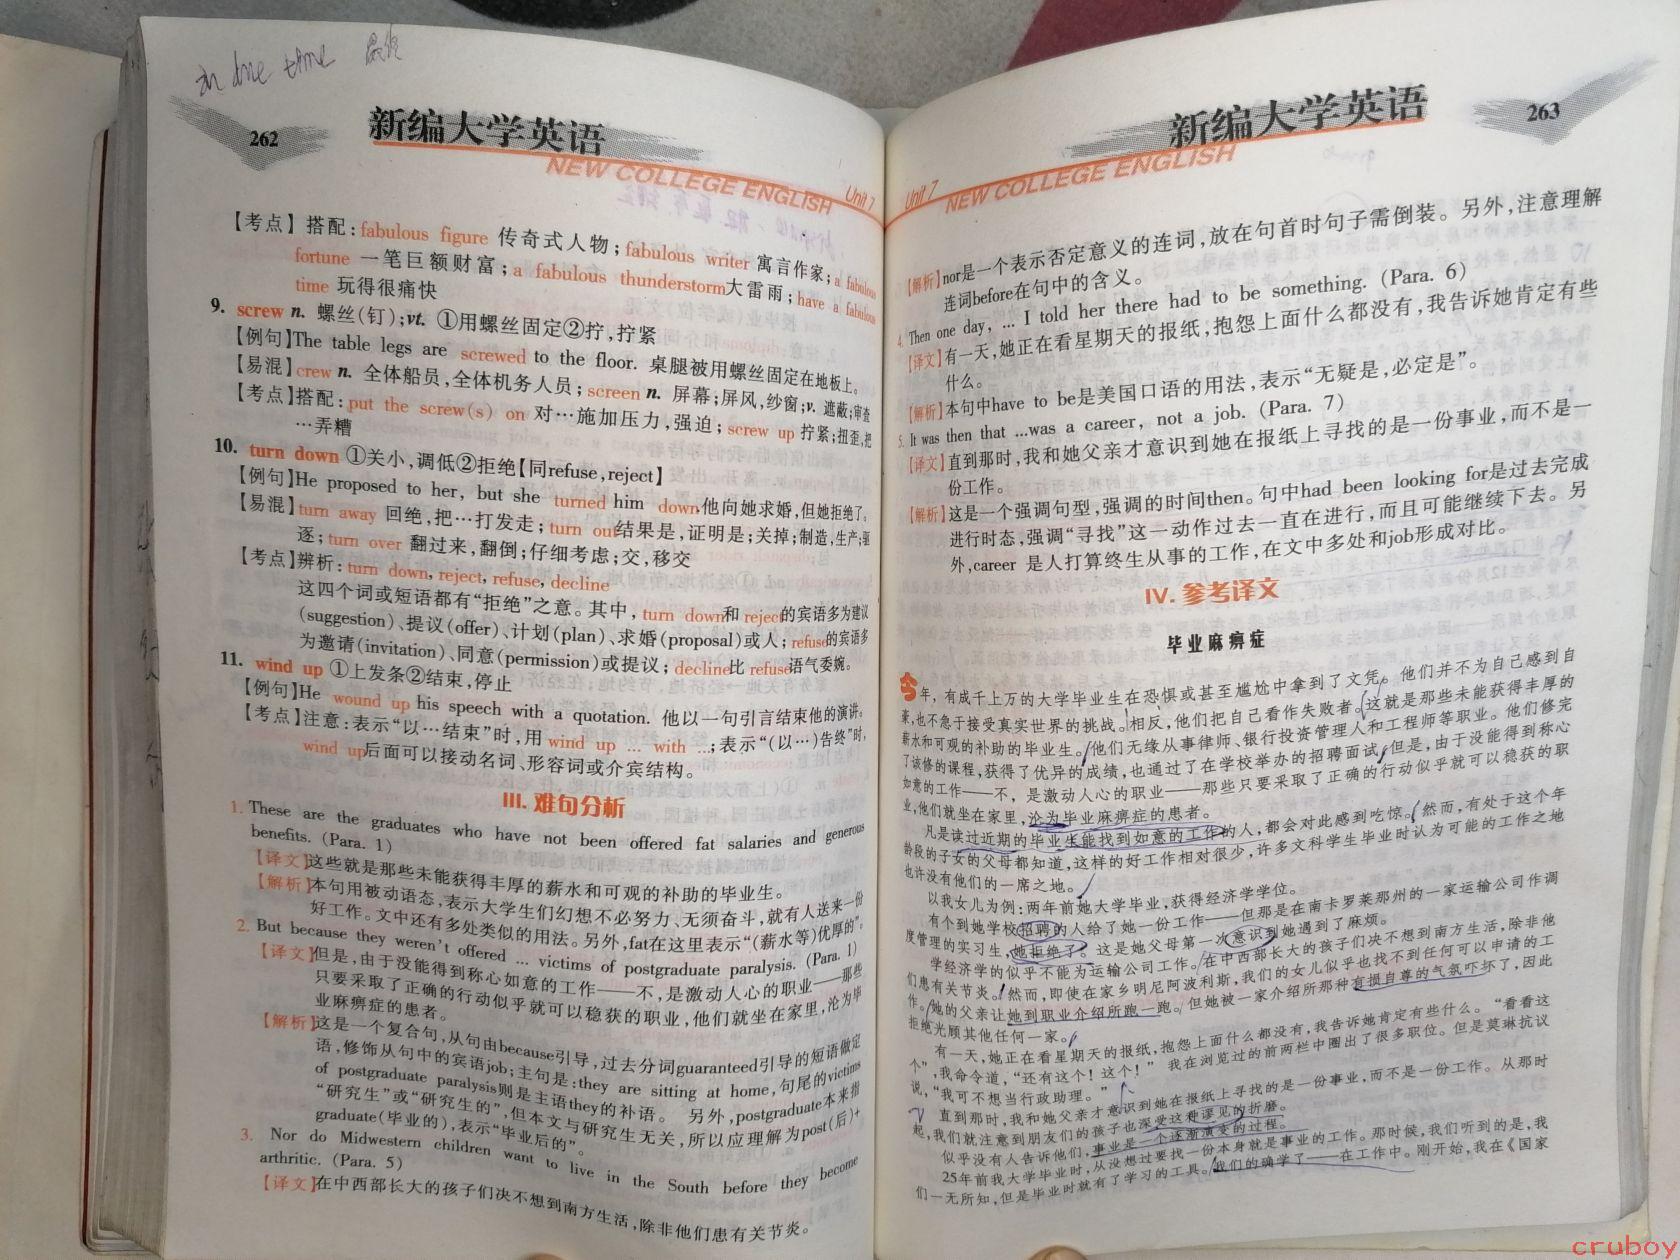 in due time 最终
262
新编大学英语
NEW COLLEGE ENGLISH
Unit 7
【考点】搭配:fabulous figure 传奇式人物;fabulous writer 寓言作家;a fabulous
fortune 一笔巨额财富;a fabulous thunderstorm大雷雨;have a fabulous
time 玩得很痛快
9. screw n. 螺丝(钉);vt. ①用螺丝固定②拧,拧紧
【例句】The table legs are screwed to the floor. 桌腿被用螺丝固定在地板上。
【易混】crew n. 全体船员,全体机务人员;screen n. 屏幕;屏风,纱窗;v. 遮蔽;审查
【考点】搭配:put the screw(s) on 对…施加压力,强迫;screw up 拧紧;扭歪,把
…弄糟
10. turn down ①关小,调低②拒绝【同refuse,reject】
【例句】He proposed to her, but she turned him down.他向她求婚,但她拒绝了。
【易混】turn away 回绝,把…打发走;turn out结果是,证明是;关掉;制造,生产;驱
逐;turn over 翻过来,翻倒;仔细考虑;交,移交
【考点】辨析:turn down, reject, refuse, decline
这四个词或短语都有“拒绝”之意。其中,turn down和reject的宾语多为建议
(suggestion)、提议(offer)、计划(plan)、求婚(proposal)或人;refuse的宾语多
为邀请(invitation)、同意(permission)或提议;decline比refuse语气委婉。
11. wind up ①上发条②结束,停止
【例句】He wound up his speech with a quotation. 他以一句引言结束他的演讲。
【考点】注意:表示“以…结束”时,用wind up ... with ...;表示“(以…)告终”时,
wind up后面可以接动名词、形容词或介宾结构。
III. 难句分析
1. These are the graduates who have not been offered fat salaries and generous
benefits. (Para. 1)
【译文】这些就是那些未能获得丰厚的薪水和可观的补助的毕业生。
【解析】本句用被动语态,表示大学生们幻想不必努力、无须奋斗,就有人送来一份
好工作。文中还有多处类似的用法。另外,fat在这里表示“(薪水等)优厚的”。
2. But because they weren't offered ... victims of postgraduate paralysis. (Para. 1)
【译文】但是,由于没能得到称心如意的工作——不,是激动人心的职业——那些
只要采取了正确的行动似乎就可以稳获的职业,他们就坐在家里,沦为毕
业麻痹症的患者。
【解析】这是一个复合句,从句由because引导,过去分词guaranteed引导的短语做定
语,修饰从句中的宾语job;主句是:they are sitting at home,句尾的victims
of postgraduate paralysis则是主语they的补语。 另外,postgraduate本来指
“研究生”或“研究生的”,但本文与研究生无关,所以应理解为post(后)+
graduate(毕业的),表示“毕业后的”。
3. Nor do Midwestern children want to live in the South before they become
arthritic. (Para. 5)
【译文】在中西部长大的孩子们决不想到南方生活,除非他们患有关节炎。
新编大学英语
263
Unit 7
NEW COLLEGE ENGLISH
【解析】nor是一个表示否定意义的连词,放在句首时句子需倒装。另外,注意理解
连词before在句中的含义。
4. Then one day, ... I told her there had to be something. (Para. 6)
【译文】有一天,她正在看星期天的报纸,抱怨上面什么都没有,我告诉她肯定有些
什么。
【解析】本句中have to be是美国口语的用法,表示“无疑是,必定是”。
5. It was then that ...was a career, not a job. (Para. 7)
【译文】直到那时,我和她父亲才意识到她在报纸上寻找的是一份事业,而不是一
份工作。
【解析】这是一个强调句型,强调的时间then。句中had been looking for是过去完成
进行时态,强调“寻找”这一动作过去一直在进行,而且可能继续下去。另
外,career 是人打算终生从事的工作,在文中多处和job形成对比。
IV. 参考译文
毕业麻痹症
今年,有成千上万的大学毕业生在恐惧或甚至尴尬中拿到了文凭。他们并不为自己感到自
豪,也不急于接受真实世界的挑战。相反,他们把自己看作失败者。这就是那些未能获得丰厚的
薪水和可观的补助的毕业生。他们无缘从事律师、银行投资管理人和工程师等职业。他们修完
了该修的课程,获得了优异的成绩,也通过了在学校举办的招聘面试,但是,由于没能得到称心
如意的工作——不,是激动人心的职业——那些只要采取了正确的行动似乎就可以稳获的职
业,他们就坐在家里,沦为毕业麻痹症的患者。
凡是读过近期的毕业生能找到如意的工作的人,都会对此感到吃惊。然而,有处于这个年
龄段的子女的父母都知道,这样的好工作相对很少,许多文科学生毕业时认为可能的工作之地
也许没有他们的一席之地。
以我女儿为例:两年前她大学毕业,获得经济学学位。
有个到她学校招聘的人给了她一份工作——但那是在南卡罗莱那州的一家运输公司作调
度管理的实习生,她拒绝了。这是她父母第一次意识到她遇到了麻烦。
学经济学的似乎不能为运输公司工作。在中西部长大的孩子们决不想到南方生活,除非他
们患有关节炎。然而,即使在家乡明尼阿波利斯,我们的女儿似乎也找不到任何可以申请的工
作。她的父亲让她到职业介绍所跑一跑。但她被一家介绍所那种有损自尊的气氛吓坏了,因此
拒绝光顾其他任何一家。
有一天,她正在看星期天的报纸,抱怨上面什么都没有,我告诉她肯定有些什么。“看看这
个”,我命令道,“还有这个!这个!” 我在浏览过的前两栏中圈出了很多职位。但是莫琳抗议
说,“我可不想当行政助理。”
直到那时,我和她父亲才意识到她在报纸上寻找的是一份事业,而不是一份工作。从那时
起,我们就注意到朋友们的孩子也深受这种谬见的折磨。
似乎没有人告诉他们,事业是一个逐渐演变的过程。
25年前我大学毕业时,从没想过要找一份本身就是事业的工作。那时候,我们听到的是,我
们一无所知,但是毕业时就有了学习的工具。我们的确学了——在工作中。刚开始,我在《国家
cruboy